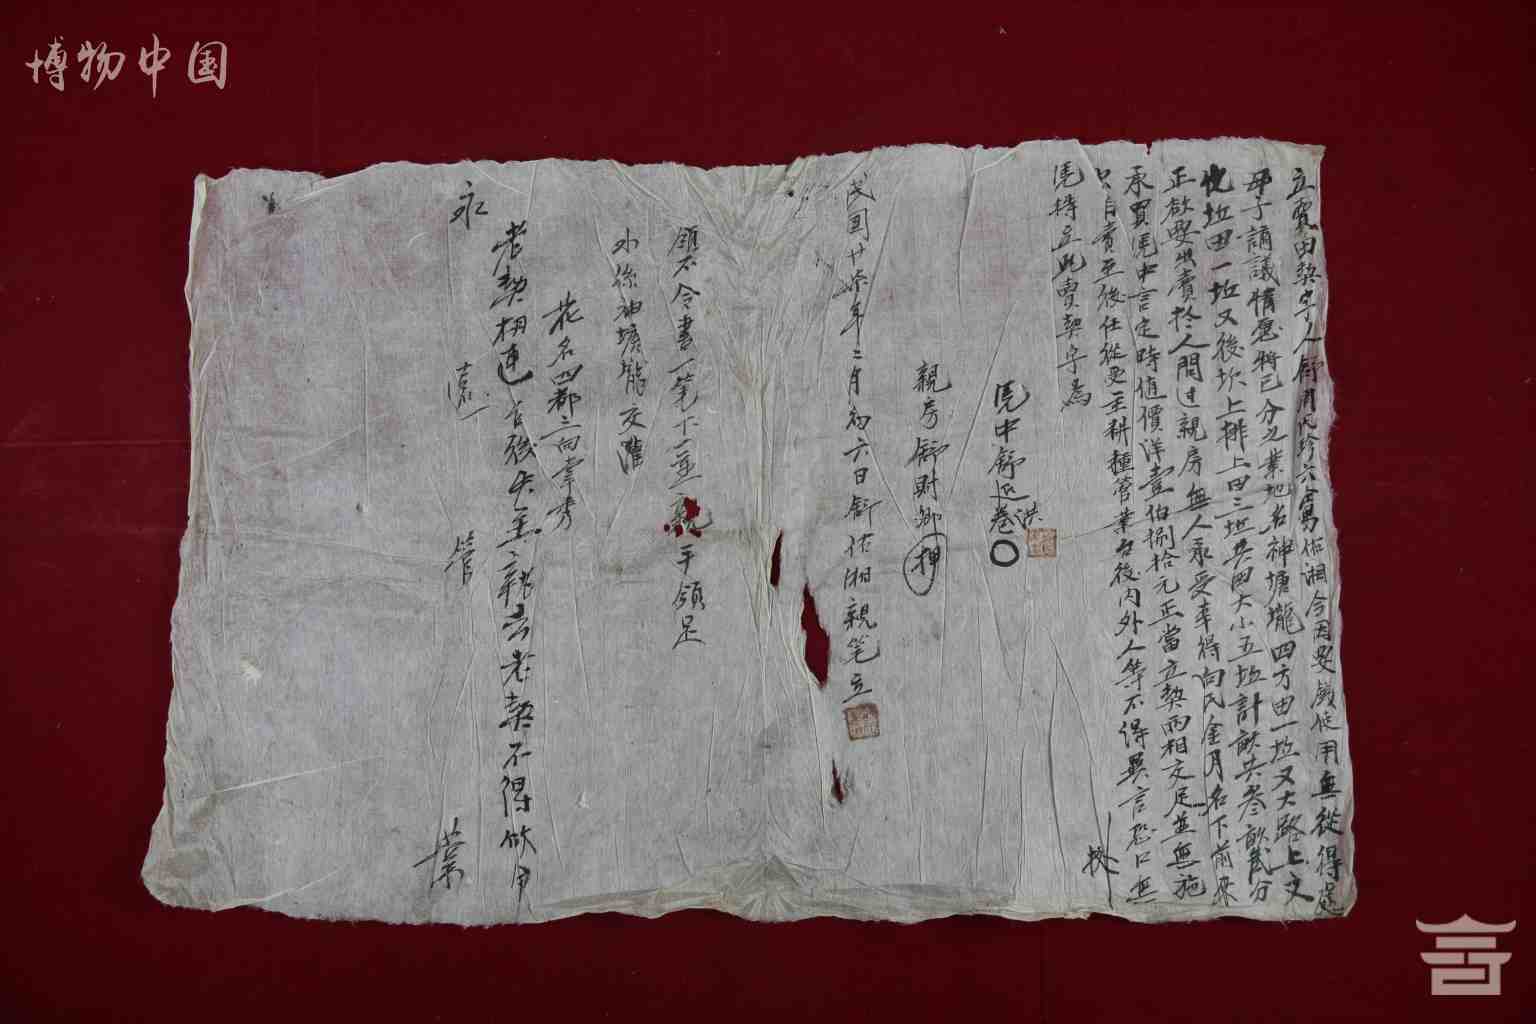 博物中国
立賣田契字人舒門氏珍六寓佑湘今因要錢使用無從得處
母子謪議情愿將已分之業地名神塘壠四方田一坵又大路上文
坵田一坵又後坎上排上田三坵共田大小五坵計畝共叁畝貳分
正欲要出賣於人問过親房無人承受幸得向氏金月名下前來
承買凴中言定時值價洋壹伯捌拾元正當立契兩相交足並無
自賣至後任從受主耕種管業在後內外人等不得異言恐口無
凴特立此賣契字為
凴中舒洪
親房舒財卿押
民國廿柒年二月初六日舒佑湘親笔立
領不令書一笔下一並親手領足
水係神塘壠文灌
花名四都三向
老契相連言後失主老契不得做用
永遠管業